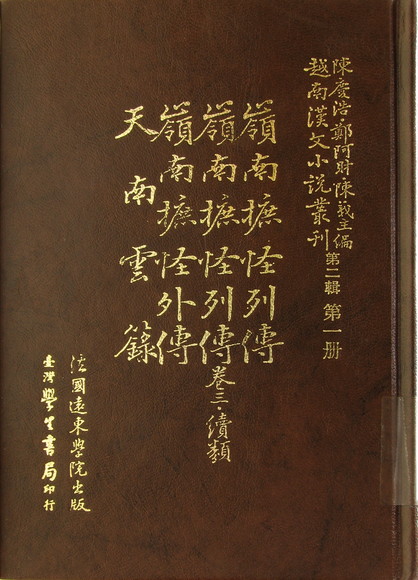 陳慶浩鄭阿財陳義主編
越南漢文小説叢刊第二輯第一册
嶺南摭怪列傳
嶺南摭怪列傳卷三·續類
嶺南摭怪外傳
天南雲籙
法國遠東學院出版
臺灣學生書局印行